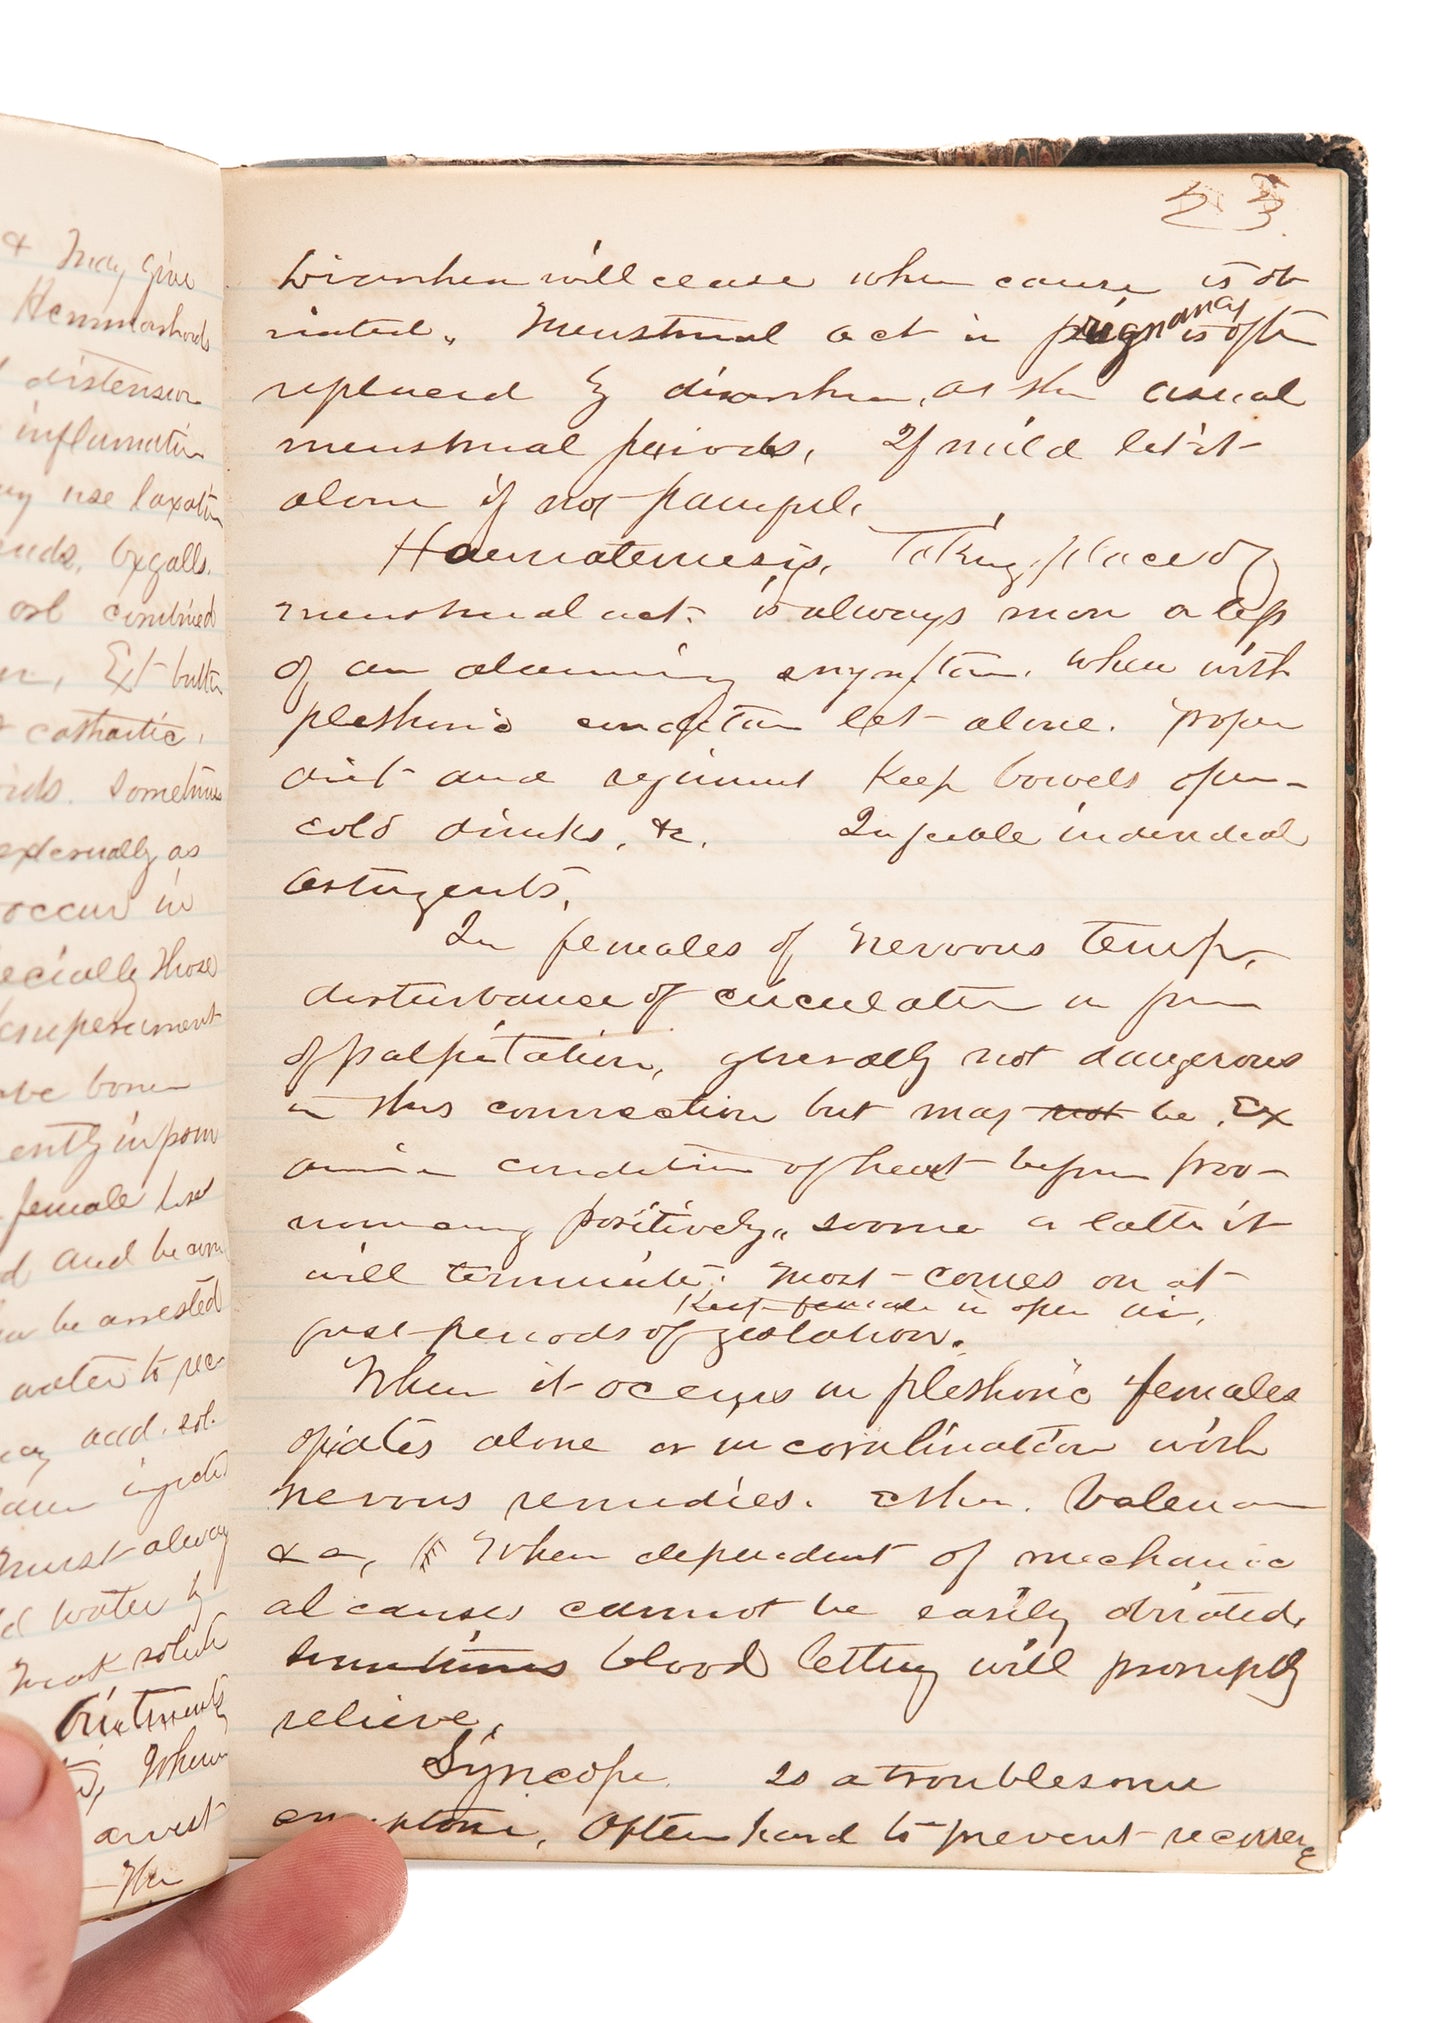 & May give
Hemmorhoids
distension
inflamation
use laxative
Oxgalls.
combined
Ext butter
cathartic,
Sometimes
externally as
occur in
especially those
temperament
bone
in pom
female
and become
be arrested
water to
acid. sol.
must always
water by
weak solute
Ointments
When
arrest
The
23.
Diarrhea will cease when cause is ob
viated. Menstrual act in pregnancy is often
replaced by diarrhea, at the usual
menstrual periods, If mild let it
alone if not painful.
Haematemesis, Taking place of
menstrual act. is always more or less
of an alarming symptom. When with
plethoric condition let alone. proper
diet and regimen Keep bowels open-
cold drinks, &c. In feeble individual
astringents,
In females of nervous temp,
disturbance of circulation in form
of palpitation, generally not dangerous
in this connection but may not be. Ex
amine condition of heart before pro-
nouncing positively,, sooner or later it
will terminate. Most comes on at
Keep female in open air,
first periods of gestation.
When it occurs in plethoric females
opiates alone or in combination with
nervous remedies. Ether. Valerian
&c, When dependent of mechanic
al causes cannot be easily obviated,
sometimes blood letting will promptly
relieve,
Syncope. Is a troublesome
symptom, Often hard to prevent recurrence